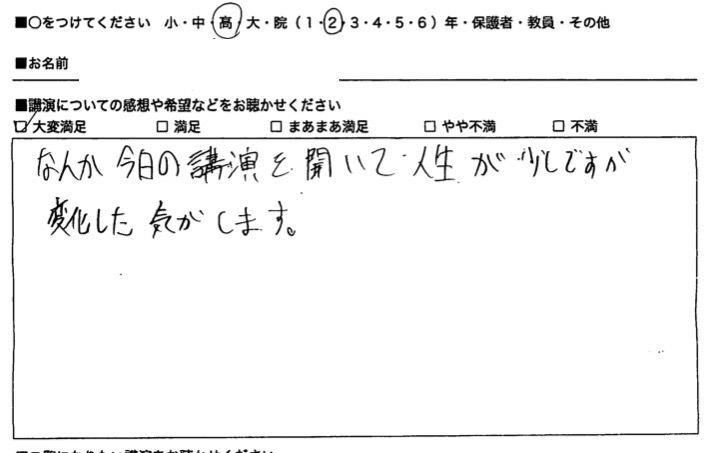 ■○をつけてください 小・中・高・大・院（1・2・3・4・5・6）年・保護者・教員・その他
■お名前
■講演についての感想や希望などをお聴かせください
☑ 大変満足 □ 満足 □ まあまあ満足 □ やや不満 □ 不満
なんか今日の講演を開いて人生が少しですが
変化した気がします。